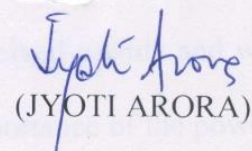 Jyoti Arora
(JYOTI ARORA)